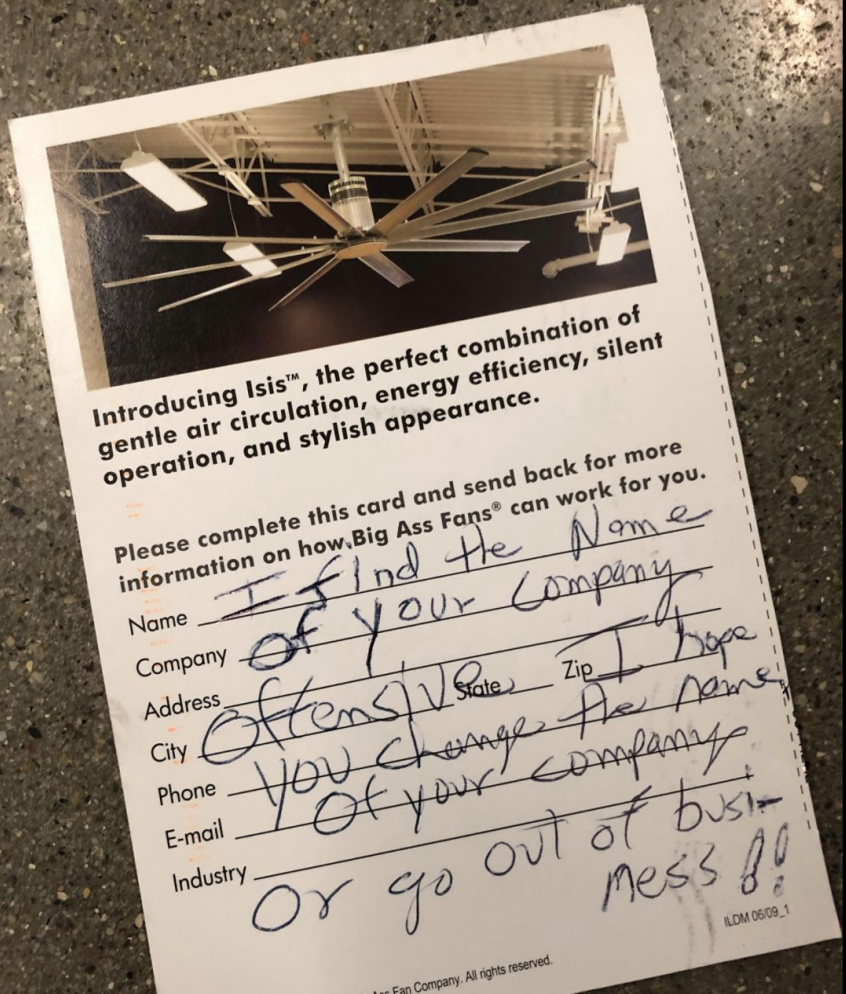 Introducing Isis™, the perfect combination of
gentle air circulation, energy efficiency, silent
operation, and stylish appearance.
Please complete this card and send back for more
information on how Big Ass Fans® can work for you.
Name I find the Name
Company of your Company
Address
City Offensive State Zip I hope
Phone you change the name
E-mail Of your company
Industry
Or go out of busi-
ness!!
ILDM 06/09_1
Ass Fan Company. All rights reserved.